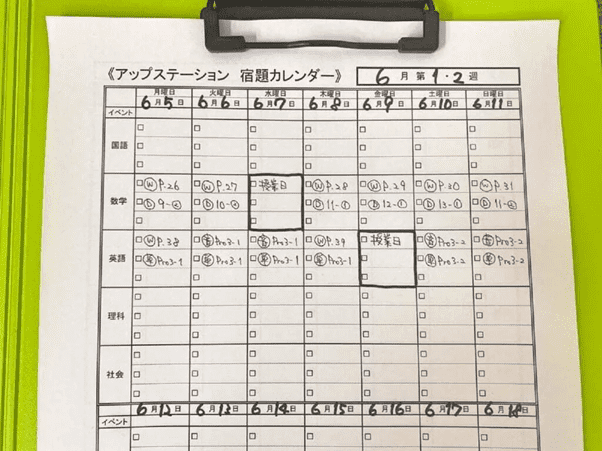 《アップステーション 宿題カレンダー》 6月第1・2週
月曜日 火曜日 水曜日 木曜日 金曜日 土曜日 日曜日
6月5日 6月6日 6月7日 6月8日 6月9日 6月10日 6月11日
イベント
国語
数学
Ⓦ P.26 Ⓦ P.27 授業日 Ⓦ P.28 Ⓦ P.29 Ⓦ P.30 Ⓦ P.31
Ⓓ 9-② Ⓓ 10-② Ⓓ 11-① Ⓓ 12-① Ⓓ 13-① Ⓓ 11-②
英語
Ⓦ P.38 Pro3-1 Pro3-1 Ⓦ P.39 授業日 Pro3-2 Pro3-2
Pro3-1 Pro3-1 Pro3-1 Pro3-1 Pro3-2 Pro3-2
理科
社会
6月12日 6月13日 6月14日 6月15日 6月16日 6月17日 6月18日
イベント